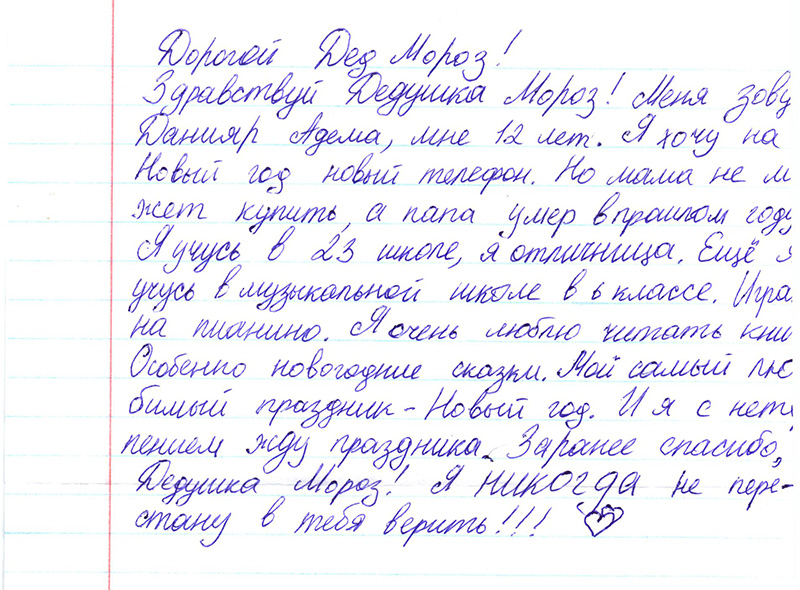 Дорогой Дед Мороз!
Здравствуй Дедушка Мороз! Меня зову
Данияр Адема, мне 12 лет. Я хочу на
Новый год новый телефон. Но мама не м
жет купить, а папа умер в прашлом году
Я учусь в 23 школе, я отличница. Ещё я
учусь в музыкальной школе в 6 классе. Игра
на пианино. Я очень люблю читать кни
Особенно новогодние сказки. Мой самый лю
бимый праздник - Новый год. И я с нет
пением жду праздника. Заранее спасибо,
Дедушка Мороз! Я НИКОГДА не пере-
стану в тебя верить!!!